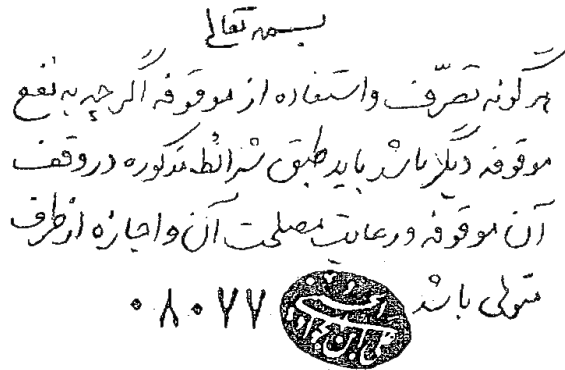 بسمه تعالی
هر گونه تصرّف و استفاده از موقوفه اگر چه به نفع
موقوفه دیگر باشد باید طبق شرائط مذکوره در وقف
آن موقوفه و رعایت مصلحت آن و اجازه از طرف
متولی باشد
۰۸۰۷۷